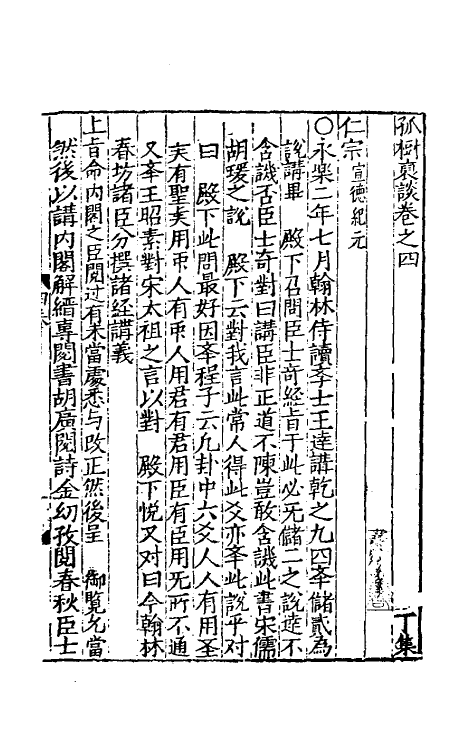 孤樹裒談卷之四
丁集
仁宗宣德紀元
○永樂二年七月翰林侍讀李士王達講乾之九四李儲貳為
說講畢　殿下召問臣士奇經旨于此必无儲二之說達不
含譏否臣士奇對曰講臣非正道不陳豈敢含譏此書宋儒
胡瑗之說　殿下云對我言此常人得此爻亦李此說乎對
曰　殿下此問最好因李程子云九卦中六爻人人有用圣
夫有聖夫用帀人有帀人用君有君用臣有臣用无所不通
又李王昭素對宋太祖之言以對　殿下悅又对曰今翰林
春坊諸臣分撰諸經講義
上旨命内閣之臣閱过有未當處悉与改正然後呈　御覽允當
然後以講内閣解縉專閱書胡廣閱詩金幼孜閱春秋臣士